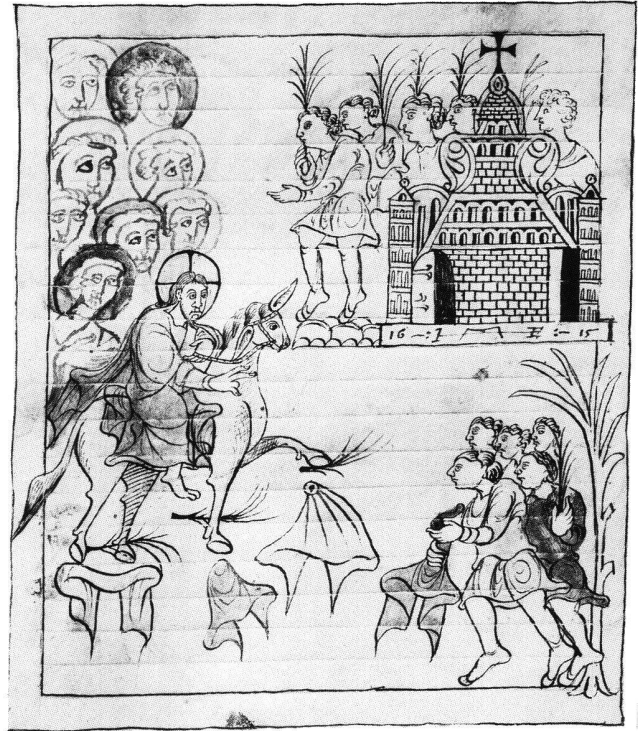 16 -:- I M E :- 15